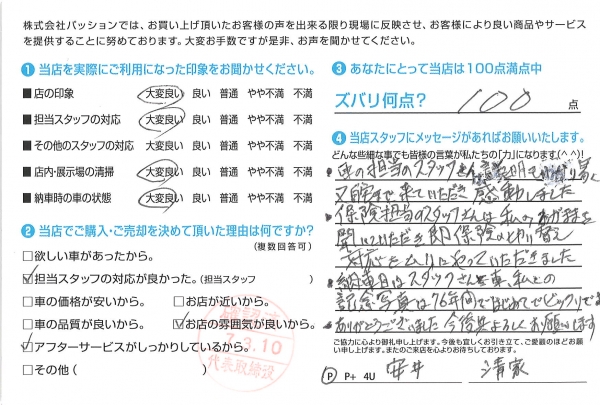 株式会社パッションでは、お買い上げ頂いたお客様の声を出来る限り現場に反映させ、お客様により良い商品やサービス
を提供することに努めております。大変お手数ですが是非、お声を聞かせてください。
❶ 当店を実際にご利用になった印象をお聞かせください。
■店の印象 大変良い 良い 普通 やや不満 不満
■担当スタッフの対応 大変良い 良い 普通 やや不満 不満
■その他のスタッフの対応 大変良い 良い 普通 やや不満 不満
■店内・展示場の清掃 大変良い 良い 普通 やや不満 不満
■納車時の車の状態 大変良い 良い 普通 やや不満 不満
❷ 当店でご購入・ご売却を決めて頂いた理由は何ですか?
(複数回答可)
□欲しい車があったから。
☑担当スタッフの対応が良かった。(担当スタッフ )
□車の価格が安いから。 □お店が近いから。
□車の品質が良いから。 ☑お店の雰囲気が良いから。
☑アフターサービスがしっかりしているから。
□その他 ( )
確認済
7.3.10
代表取締役
❸ あなたにとって当店は100点満点中
ズバリ何点? 100 点
❹ 当店スタッフにメッセージがあればお願いいたします。
どんな些細な事でも皆様の言葉が私たちの「力」になります(^^)!
の担当のスタッフさん 説明
来ていただき 感動しました
・保険担当のスタッフさんは私のわがままを
聞いていただき 即保険の切り替え
対応 していただきました
・納車日はスタッフさんと車、私との
記念写真は76年間ではじめてでビックリです
ありがとうございました 今後共よろしくお願いします
ご協力に心より御礼申し上げます。今後も宜しくお引き立て、ご愛顧のほどお願い
い申し上げます。またのご来店を心よりお待ちしております。
P P+ 4U 安井 清家